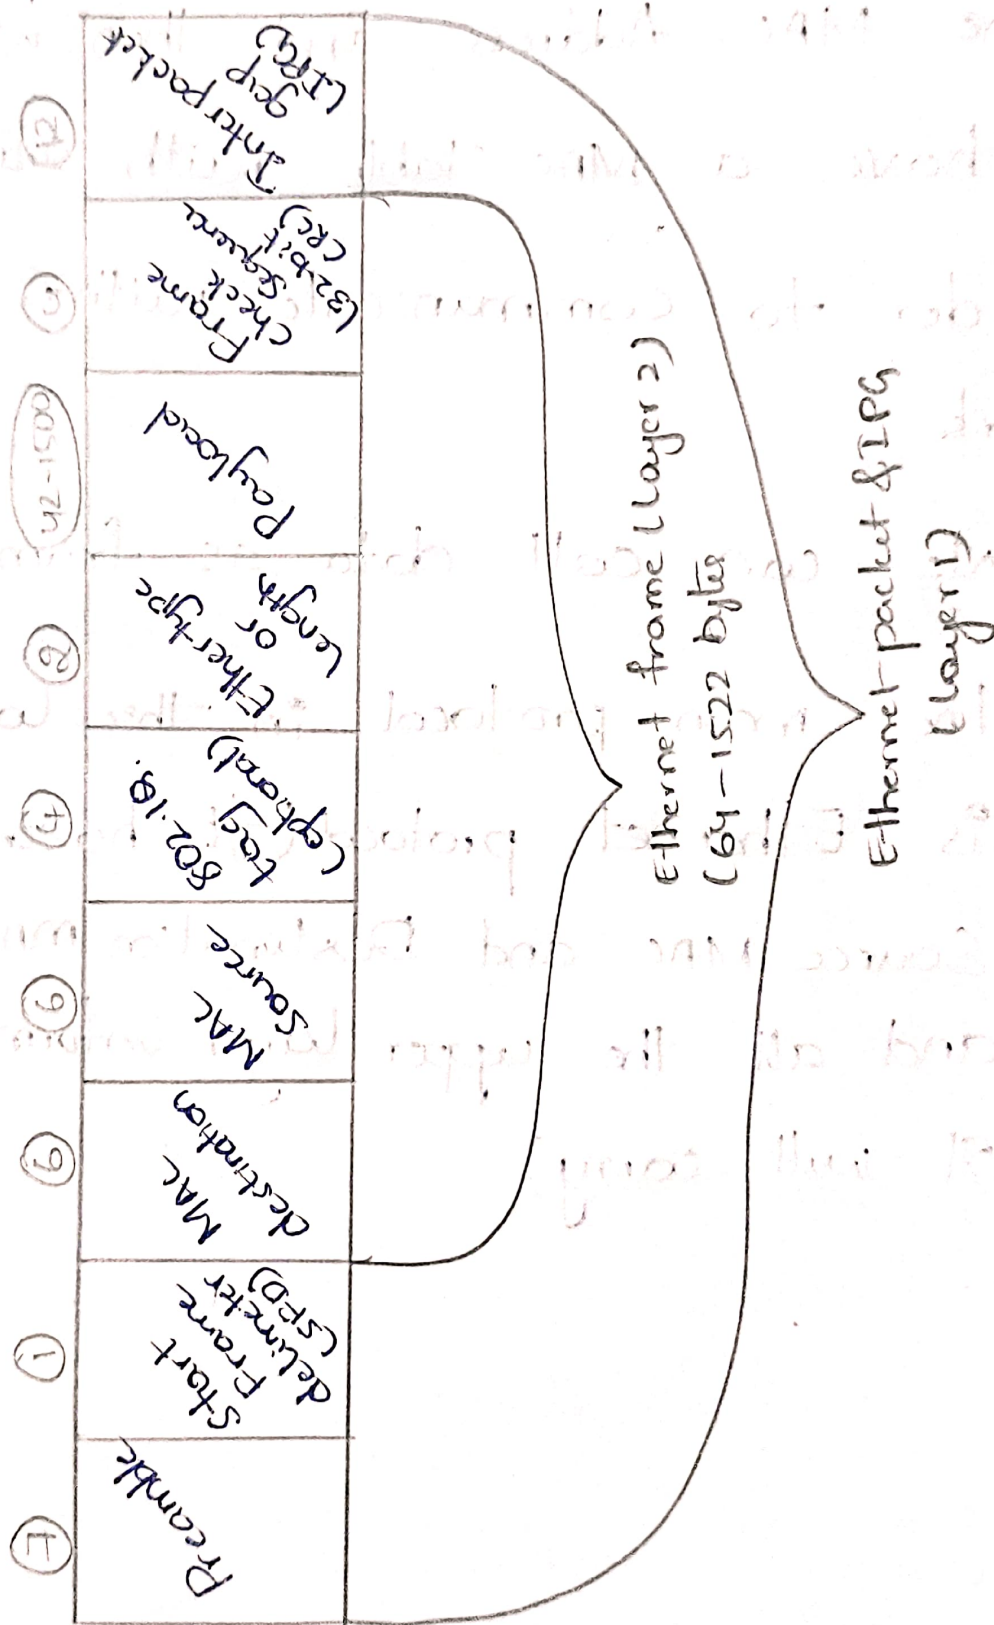 7
1
6
6
4
2
42-1500
12
Preamble
Start
Frame
delimeter
(SFD)
MAC
destination
MAC
source
802.1Q.
tag
(optional)
Ethertype
or
Length
Payload
Frame
check
sequence
(32-bit
CRC)
Interpacket
gap
(IPG)
Ethernet frame (Layer 2)
(64-1522 bytes
Ethernet packet & IPG
(Layer 1)